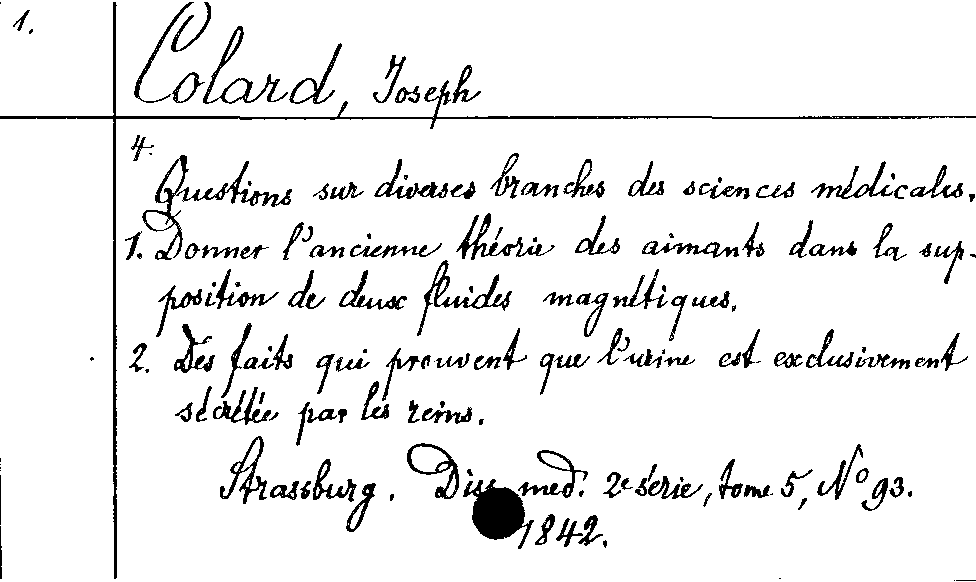 1.
Colard, Joseph
4.
Questions sur diverses branches des sciences médicales.
1. Donner l'ancienne théorie des aimants dans la sup-
position de deux fluides magnétiques.
2. Des faits qui prouvent que l'urine est exclusivement
sécrétée par les reins.
Strassburg. Diss. med. 2e série, tome 5, No 93.
1842.